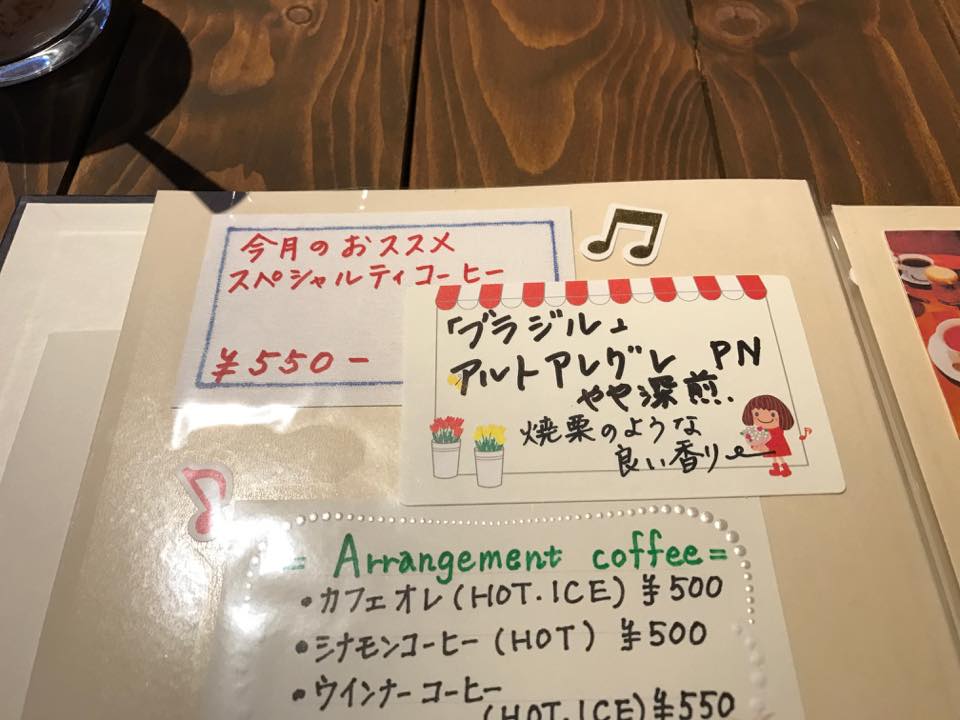 今月のおススメ
スペシャルティコーヒー
¥550-
「ブラジル」
アルトアレグレ PN
やや深煎.
焼栗のような
良い香り
= Arrangement coffee =
・カフェオレ(HOT.ICE) ¥500
・シナモンコーヒー(HOT) ¥500
・ウインナーコーヒー
(HOT.ICE) ¥550